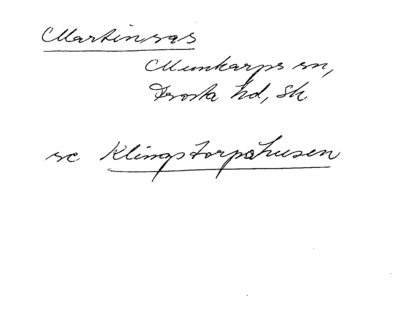 Martinsvas
Munkarps sn,
Frosta hd, Sk
se Klingstorpahusen